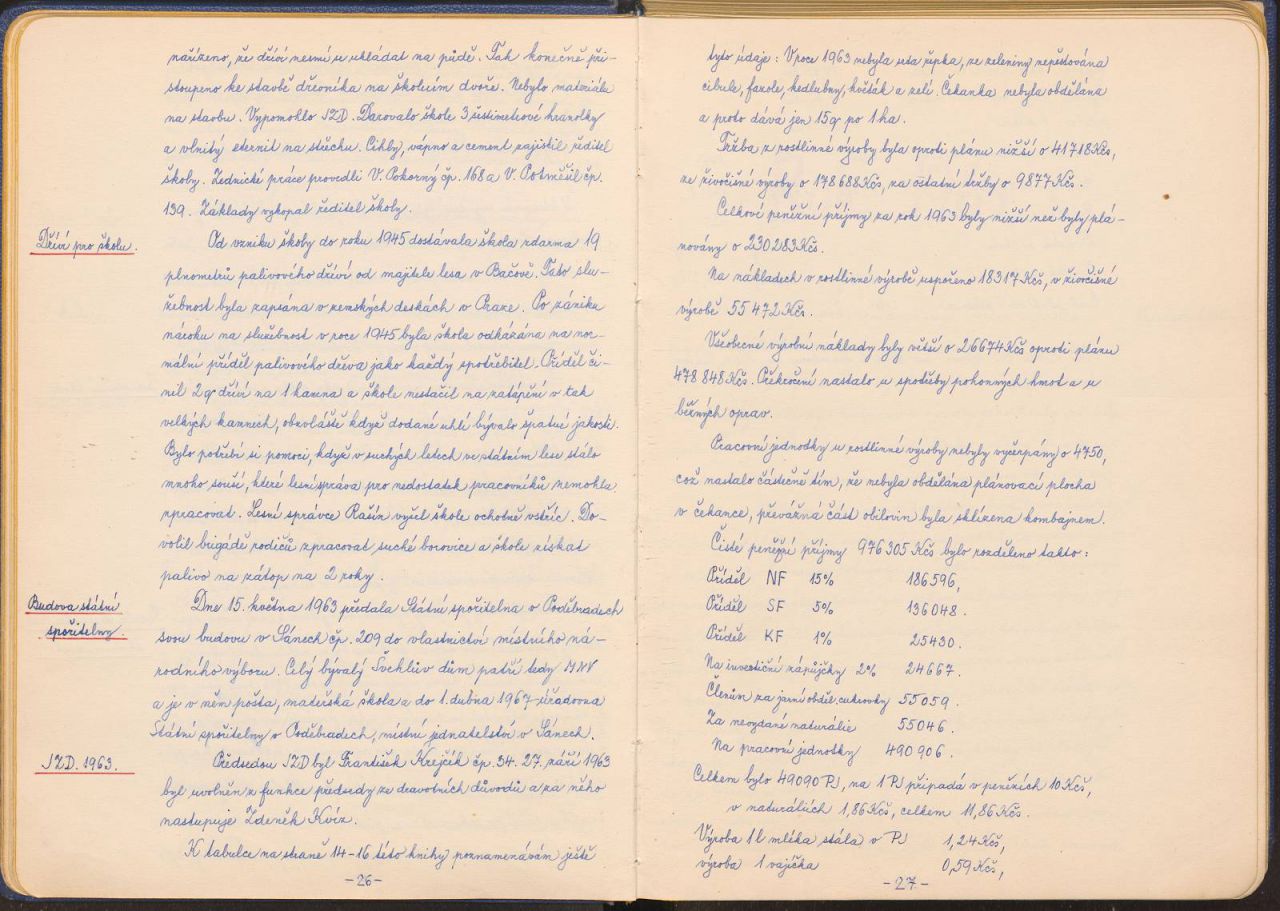 nařízeno, že dříví nesmí se ukládat na půdě. Tak konečně při-
stoupeno ke stavbě dřevníka na školním dvoře. Nebylo materiálu
na stavbu. Vypomohlo JZD. Darovalo škole 3 šestimetrové hranolky
a vlnitý eternit na střechu. Cihly, vápno a cement zajistil ředitel
školy. Zednické práce provedli V. Pokorný čp. 168 a V. Potměšil čp.
139. Základy vykopal ředitel školy.
Dříví pro školu.
Od vzniku školy do roku 1945 dostávala škola zdarma 19
plnometrů palivového dříví od majitele lesa v Bačově. Tato slu-
žebnost byla zapsána v zemských deskách v Praze. Po zániku
nároku na služebnost v roce 1945 byla škola odkázána na nor-
mální příděl palivového dřeva jako každý spotřebitel. Příděl či-
nil 2 q dříví na 1 kamna a škole nestačil na zatápění v tak
velkých kamnech, obzvláště když dodané uhlí bývalo špatné jakosti.
Bylo potřebí si pomoci, když v suchých letech ve státním lese stálo
mnoho souší, které lesní správa pro nedostatek pracovníků nemohla
zpracovat. Lesní správce Rašín vyšel škole ochotně vstříc. Do-
volil brigádě rodičů zpracovat suché borovice a škole získat
palivo na zátop na 2 roky.
Budova státní
spořitelny.
Dne 15. května 1963 předala Státní spořitelna v Poděbradech
svou budovu v Sánech čp. 209 do vlastnictví místního ná-
rodního výboru. Celý bývalý Švehlův dům patří tedy MNV
a je v něm pošta, mateřská škola a do 1. dubna 1967 úřadovna
Státní spořitelny v Poděbradech, místní jednatelství v Sánech.
JZD. 1963.
Předsedou JZD byl František Krejčík čp. 34. 27. září 1963
byl uvolněn z funkce předsedy ze zdravotních důvodů a za něho
nastupuje Zdeněk Kvíz.
K tabulce na straně 14-16 této knihy poznamenávám ještě
-26-
tyto údaje: V roce 1963 nebyla seta řepka, ze zeleniny nepěstována
cibule, fazole, kedlubny, květák a zelí. Čekanka nebyla obdělána
a proto dává jen 15 q po 1 ha.
Tržba z rostlinné výroby byla oproti plánu nižší o 41718 Kčs,
ze živočišné výroby o 178688 Kčs, za ostatní tržby o 9877 Kčs.
Celkové peněžní příjmy za rok 1963 byly nižší než byly plá-
novány o 230283 Kčs.
Na nákladech v rostlinné výrobě uspořeno 18317 Kčs, v živočišné
výrobě 55472 Kčs.
Všeobecné výrobní náklady byly větší o 26674 Kčs oproti plánu
478848 Kčs. Překročení nastalo u spotřeby pohonných hmot a u
běžných oprav.
Pracovní jednotky u rostlinné výroby nebyly vyčerpány o 4750,
což nastalo částečně tím, že nebyla obdělána plánovací plocha
v čekance, převážná část obilovin byla sklizena kombajnem.
Čisté peněžní příjmy 976305 Kčs bylo rozděleno takto:
Příděl NF 15% 186596,
Příděl SF 5% 136048.
Příděl KF 1% 25430.
Na investiční zápůjčky 2% 24667.
Členům za jarní obděl. cukrovky 55059.
Za nevydané naturálie 55046.
Na pracovní jednotky 490906.
Celkem bylo 49090 PJ, na 1 PJ připadá v penězích 10 Kčs,
v naturáliích 1,86 Kčs, celkem 11,86 Kčs.
Výroba 1 l mléka stála v PJ 1,24 Kčs,
výroba 1 vajíčka 0,59 Kčs,
-27-